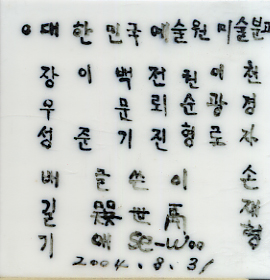 이대한민국예술원미술분과
장이백전원이천
우 문뢰순광경
성준기진형로자
배글쓴이 손
길 世 재
기 애 se-woo 형
2004. 8. 31